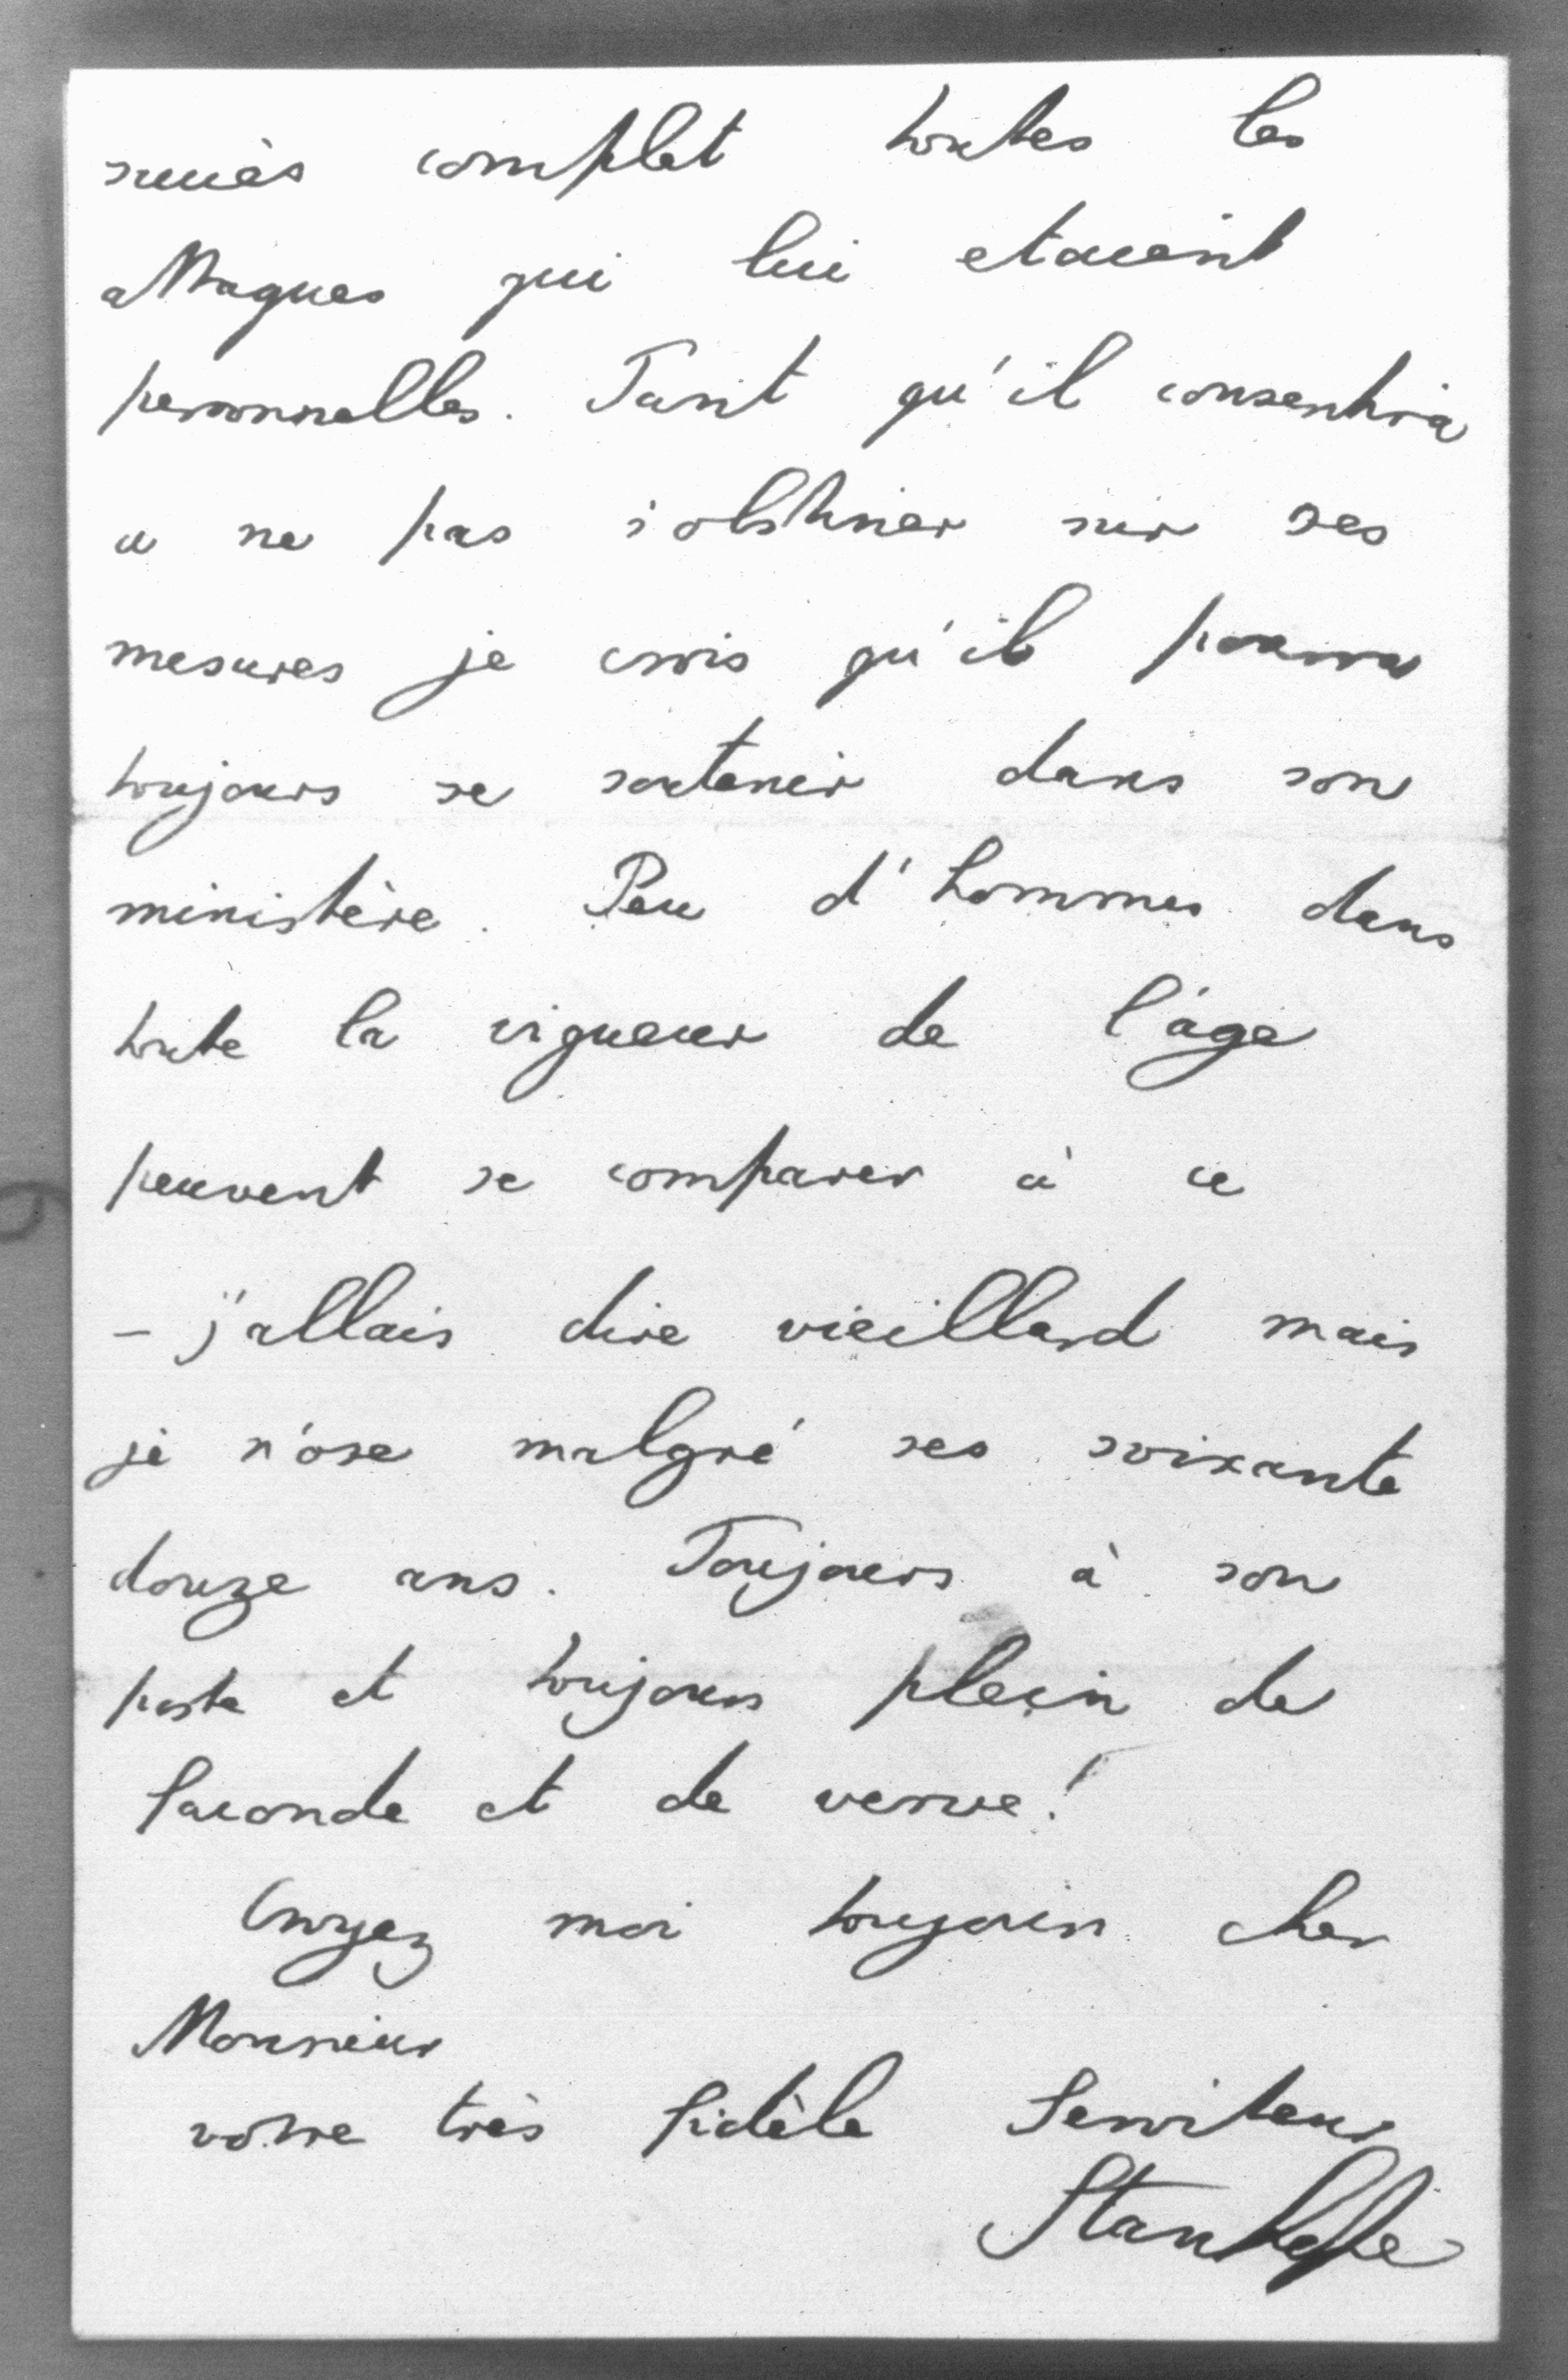 succès complet toutes les
attaques qui lui etaient
personnelles. Tant qu'il consentira
a ne pas s'obstiner sur ses
mesures je crois qu'il pourra
toujours se soutenir dans son
ministère. Peu d'hommes dans
toute la vigueur de l'âge
peuvent se comparer à ce
– j'allais dire vieillard mais
je n'ose malgré ses soixante
douze ans. Toujours à son
poste et toujours plein de
faconde et de verve!
Croyez moi toujours cher
Monsieur
votre très fidèle Serviteur